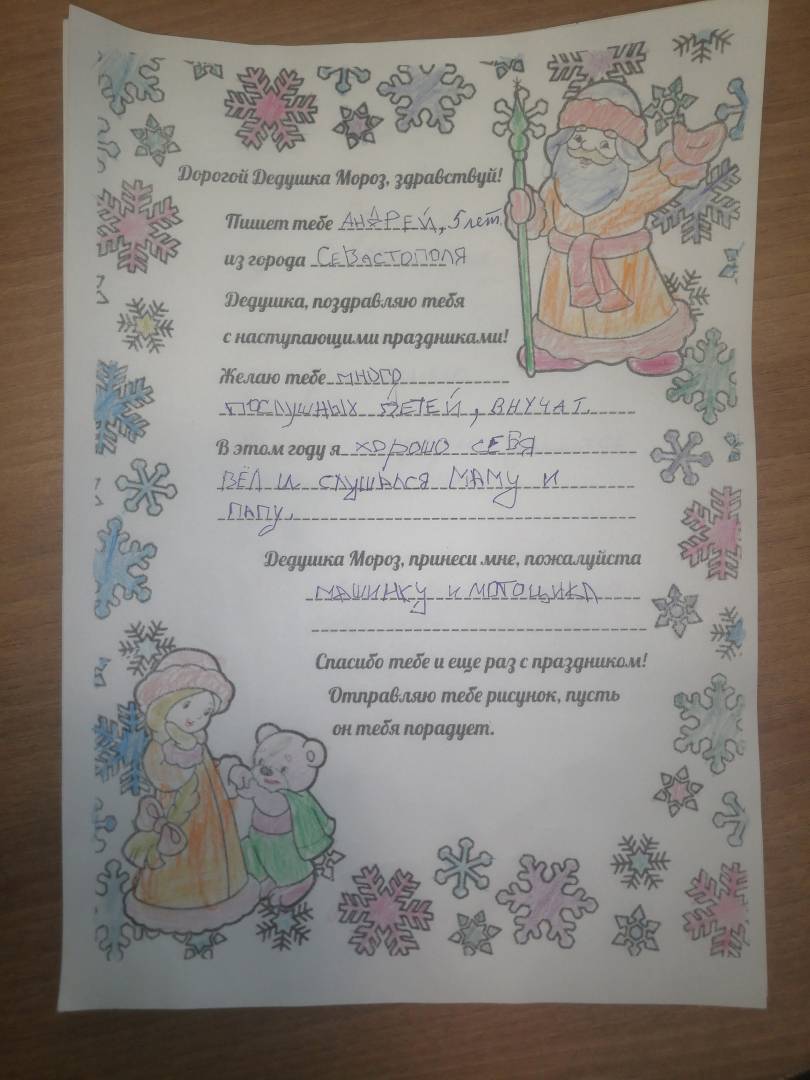 Дорогой Дедушка Мороз, здравствуй!
Пишет тебе АНДРЕЙ, 5 лет,
из города СЕВАСТОПОЛЯ
Дедушка, поздравляю тебя
с наступающими праздниками!
Желаю тебе МНОГО
ПОСЛУШНЫХ ДЕТЕЙ, ВНУЧАТ.
В этом году я ХОРОШО СЕБЯ
ВЁЛ И СЛУШАЛСЯ МАМУ И
ПАПУ.
Дедушка Мороз, принеси мне, пожалуйста
МАШИНКУ И МОТОЦИКЛ
Спасибо тебе и еще раз с праздником!
Отправляю тебе рисунок, пусть
он тебя порадует.